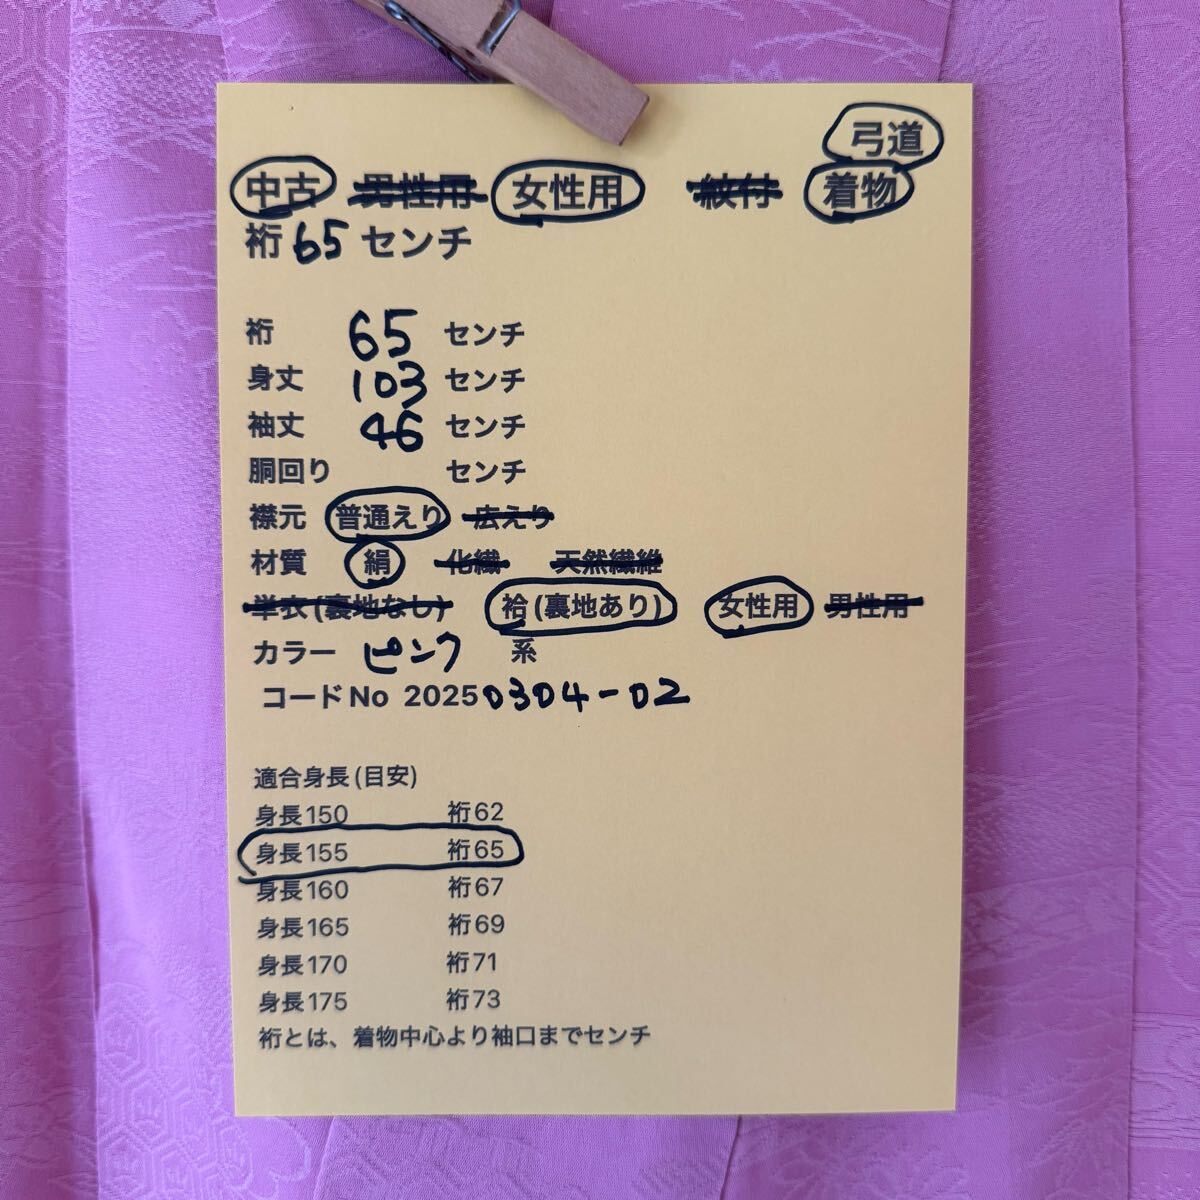 弓道
中古 男性用 女性用 紋付 着物
裄 65 センチ
裄 65 センチ
身丈 103 センチ
袖丈 46 センチ
胴回り センチ
襟元 普通えり 広えり
材質 絹 化繊 天然繊維
単衣(裏地なし) 袷(裏地あり) 女性用 男性用
カラー ピンク 系
コードNo 20250304-02
適合身長(目安)
身長150 裄62
身長155 裄65
身長160 裄67
身長165 裄69
身長170 裄71
身長175 裄73
裄とは、着物中心より袖口までセンチ